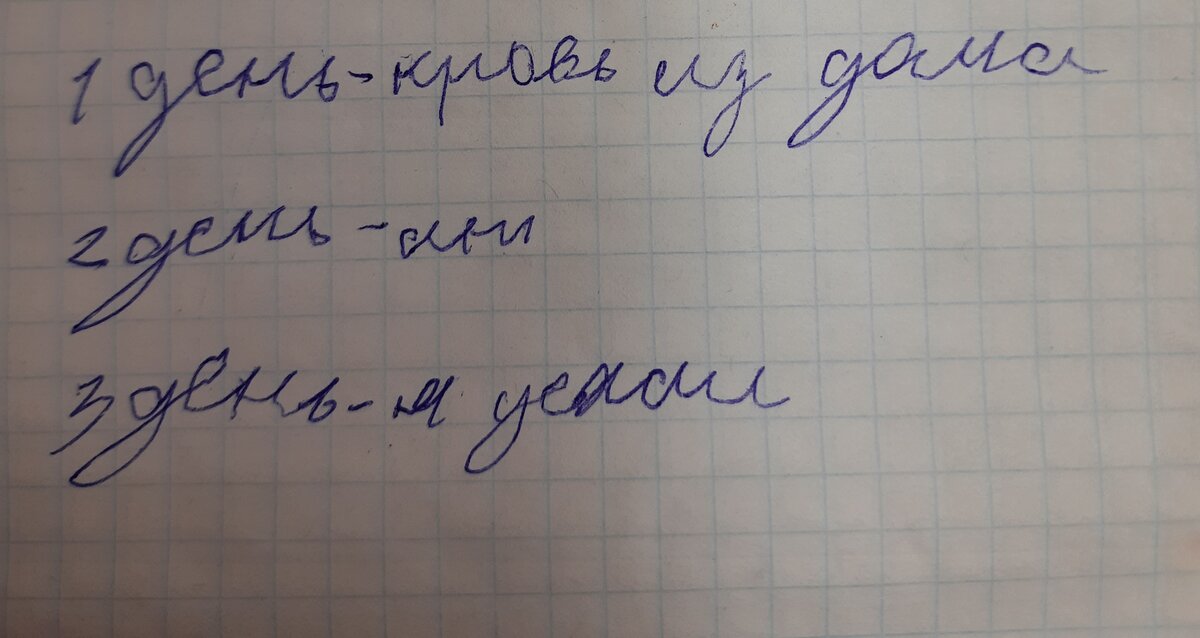 1 день-кровь из дома
2 день-они
3 день-я уехал